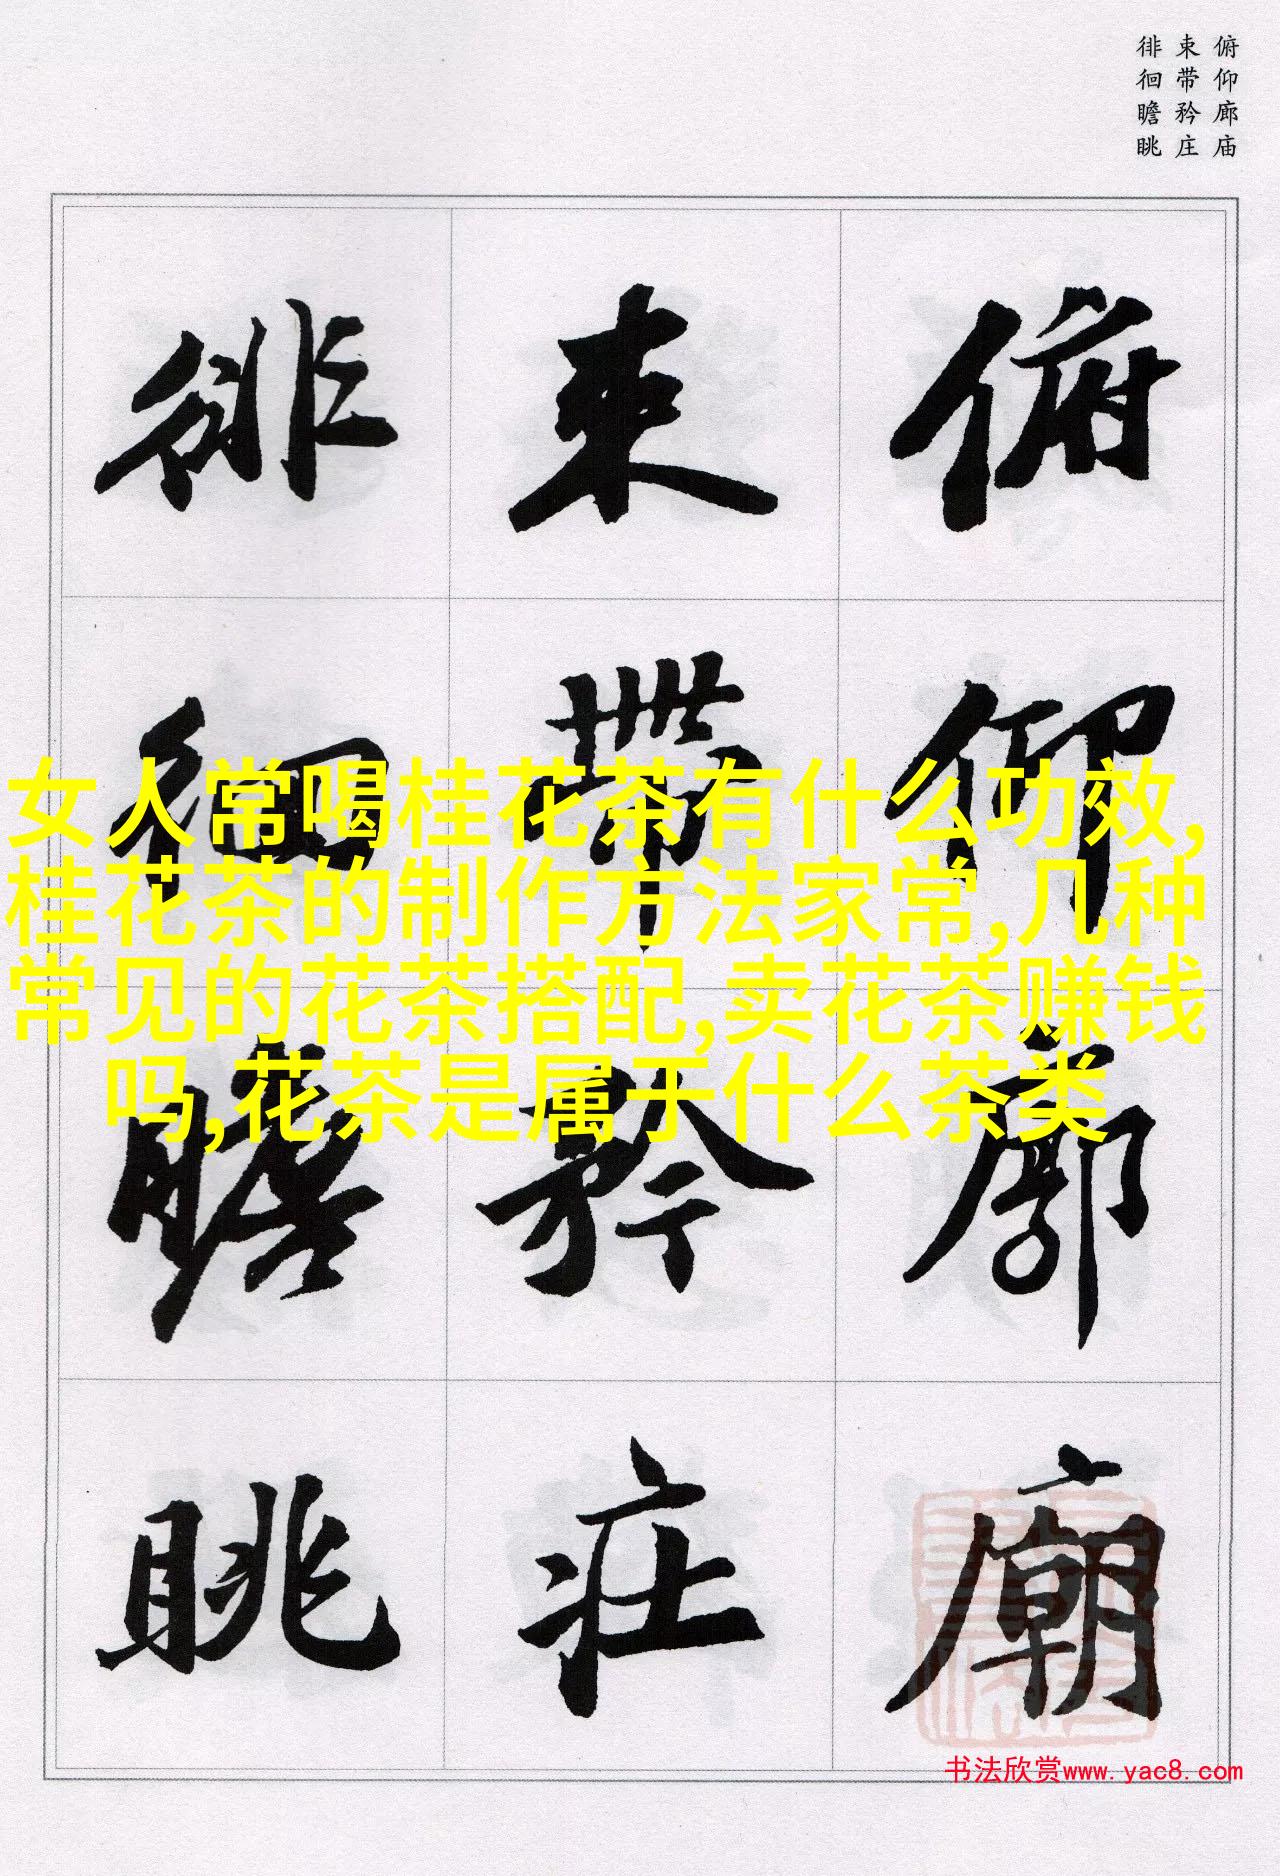 俯仰廊庙
束带矜庄
徘徊瞻眺
俯仰廊廟
束帶矜莊
徘徊瞻眺
女人常喝桂花茶有什么功效,
桂花茶的制作方法家常,几种
常见的花茶搭配,卖花茶赚钱
吗,花茶是属于什么茶类
书法欣赏www.yac8.com